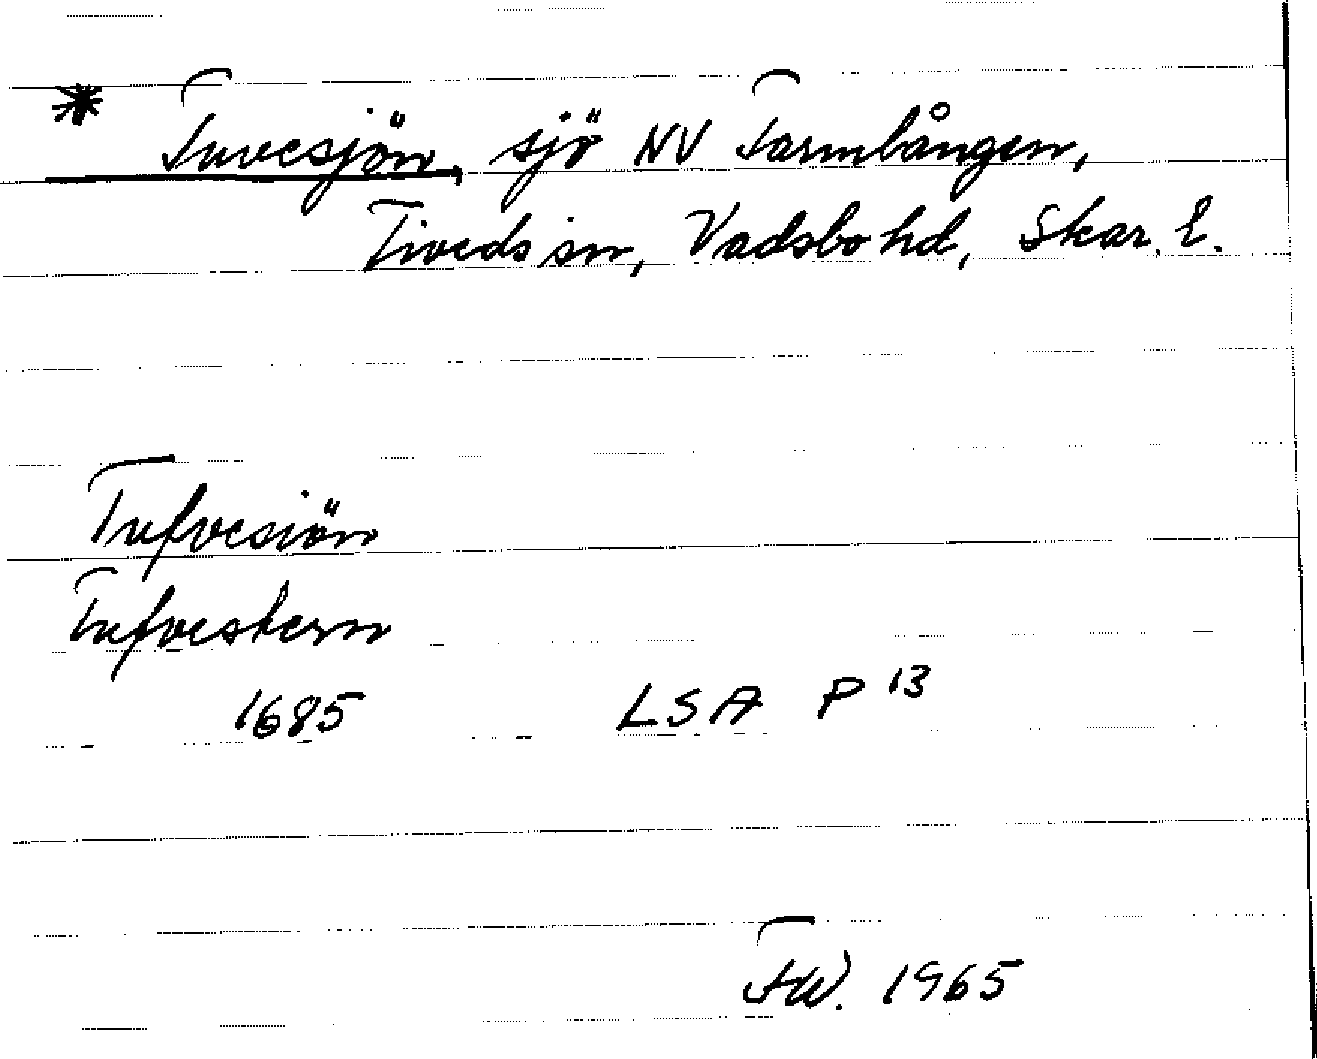 * Tuvesjön, sjö NV Tarmlången,
Tiveds sn, Vadsbo hd, Skar. l.
Tufvesiön
Tufvestern
1685 LSA P 13
TW. 1965